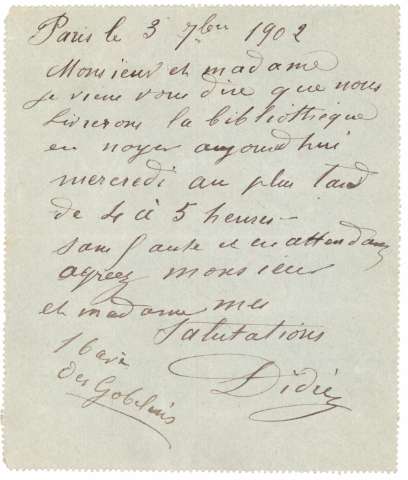 Paris le 3 7bre 1902
Monsieur et madame
je viens vous dire que nous
livrerons la bibliothèque
en noyer aujourd'hui
mercredi au plus tard
de 4 à 5 heures –
sans faute et en attendant
agréez monsieur
et madame mes
Salutations
Didier
des Gobelins